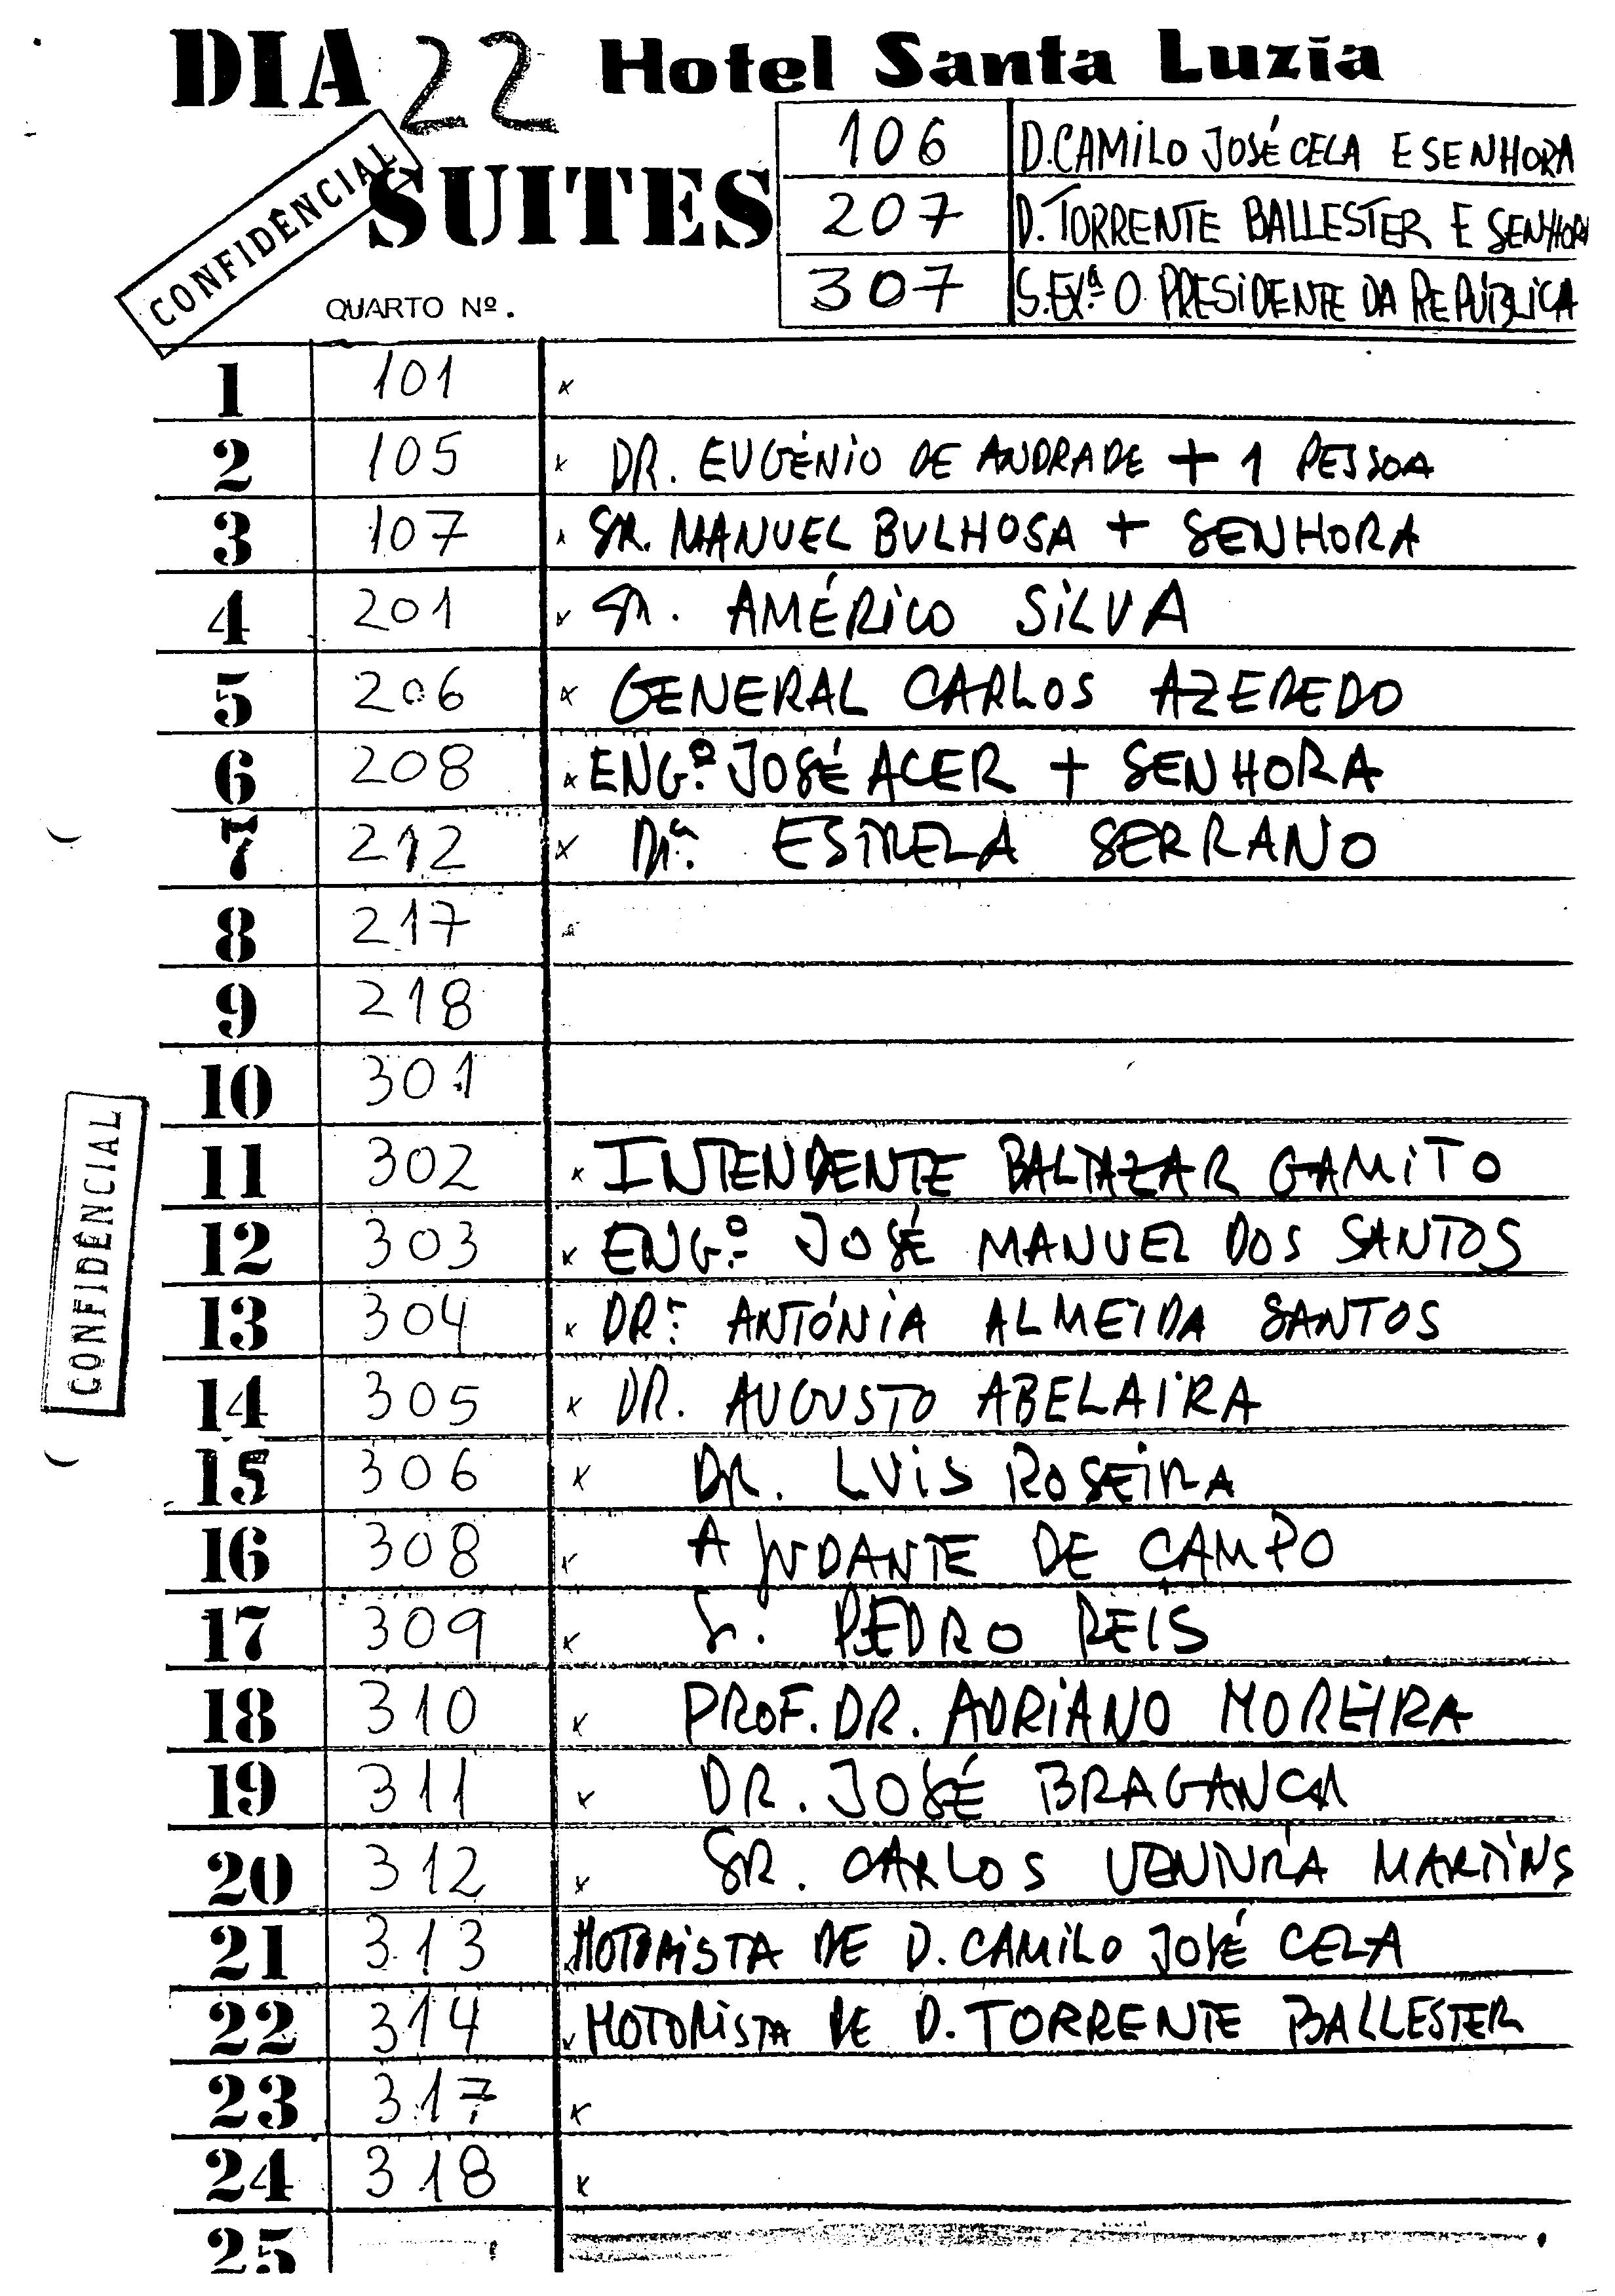 DIA 22 Hotel Santa Luzia
CONFIDÊNCIAL
SUITES
106 D. CAMILO JOSÉ CELA E SENHORA
207 D. TORRENTE BALLESTER E SENHORA
307 S. EXª O PRESIDENTE DA REPÚBLICA
QUARTO Nº.
1 101 x
2 105 x DR. EUGÉNIO DE ANDRADE + 1 PESSOA
3 107 x SR. MANUEL BULHOSA + SENHORA
4 201 x SR. AMÉRICO SILVA
5 206 x GENERAL CARLOS AZEREDO
6 208 x ENGº JOSÉ ACER + SENHORA
7 212 x DRª ESTRELA SERRANO
8 217
9 218
10 301
11 302 x INTENDENTE BALTAZAR GAMITO
12 303 x ENGº JOSÉ MANUEL DOS SANTOS
13 304 x DRª ANTÓNIA ALMEIDA SANTOS
14 305 x DR. AUGUSTO ABELAIRA
15 306 x DR. LUIS ROSEIRA
16 308 x AJUDANTE DE CAMPO
17 309 x Sr. PEDRO REIS
18 310 x PROF. DR. ADRIANO MOREIRA
19 311 x DR. JOSÉ BRAGANÇA
20 312 x SR. CARLOS VENTURA MARTINS
21 313 MOTORISTA DE D. CAMILO JOSÉ CELA
22 314 x MOTORISTA DE D. TORRENTE BALLESTER
23 317 x
24 318 x
25
CONFIDÊNCIAL